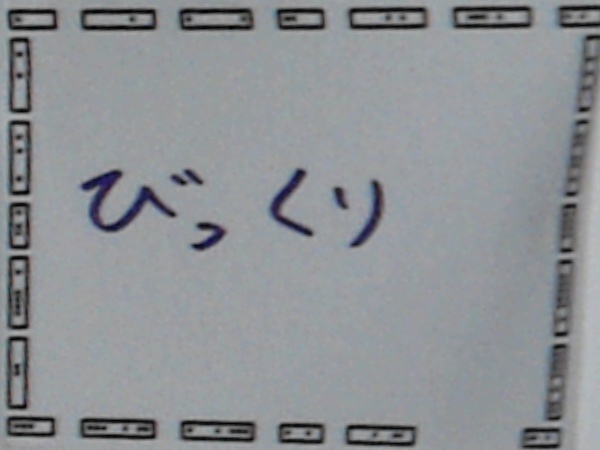 びっくり